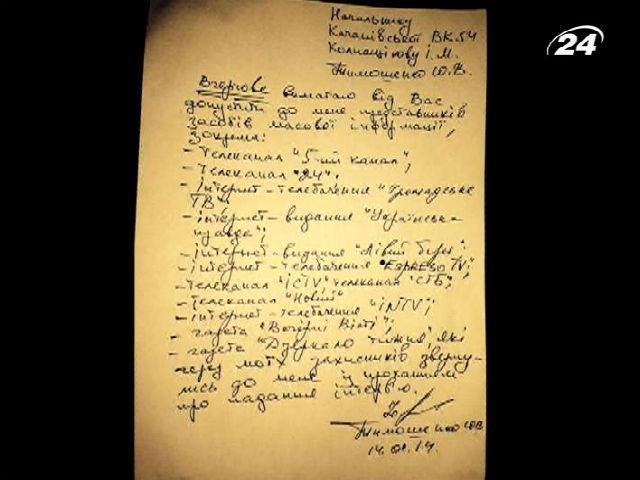 24
Начальнику
Качанівської ВК54
Колпащікову І.М.
Тимошенко Ю.В.
Вчергове вимагаю від Вас
допустити до мене представників
засобів масової інформації,
зокрема:
- телеканал "5-ий канал";
- телеканал "24";
- інтернет-телебачення "Громадське
ТВ";
- інтернет-видання "Українська
правда";
- інтернет-видання "Лівий берег";
- інтернет-телебачення "ESPRESO TV;
- телеканал "ICTV" телеканал "СТБ";
- телеканал "Новий"
- інтернет-телебачення "INTV;
- газета "Вечірні Вісті";
- газета "Дзеркало тижня", які
через моїх захисників зверну-
лись до мене із проханням
про надання інтерв'ю.
Тимошенко ЮВ
14.01.14.